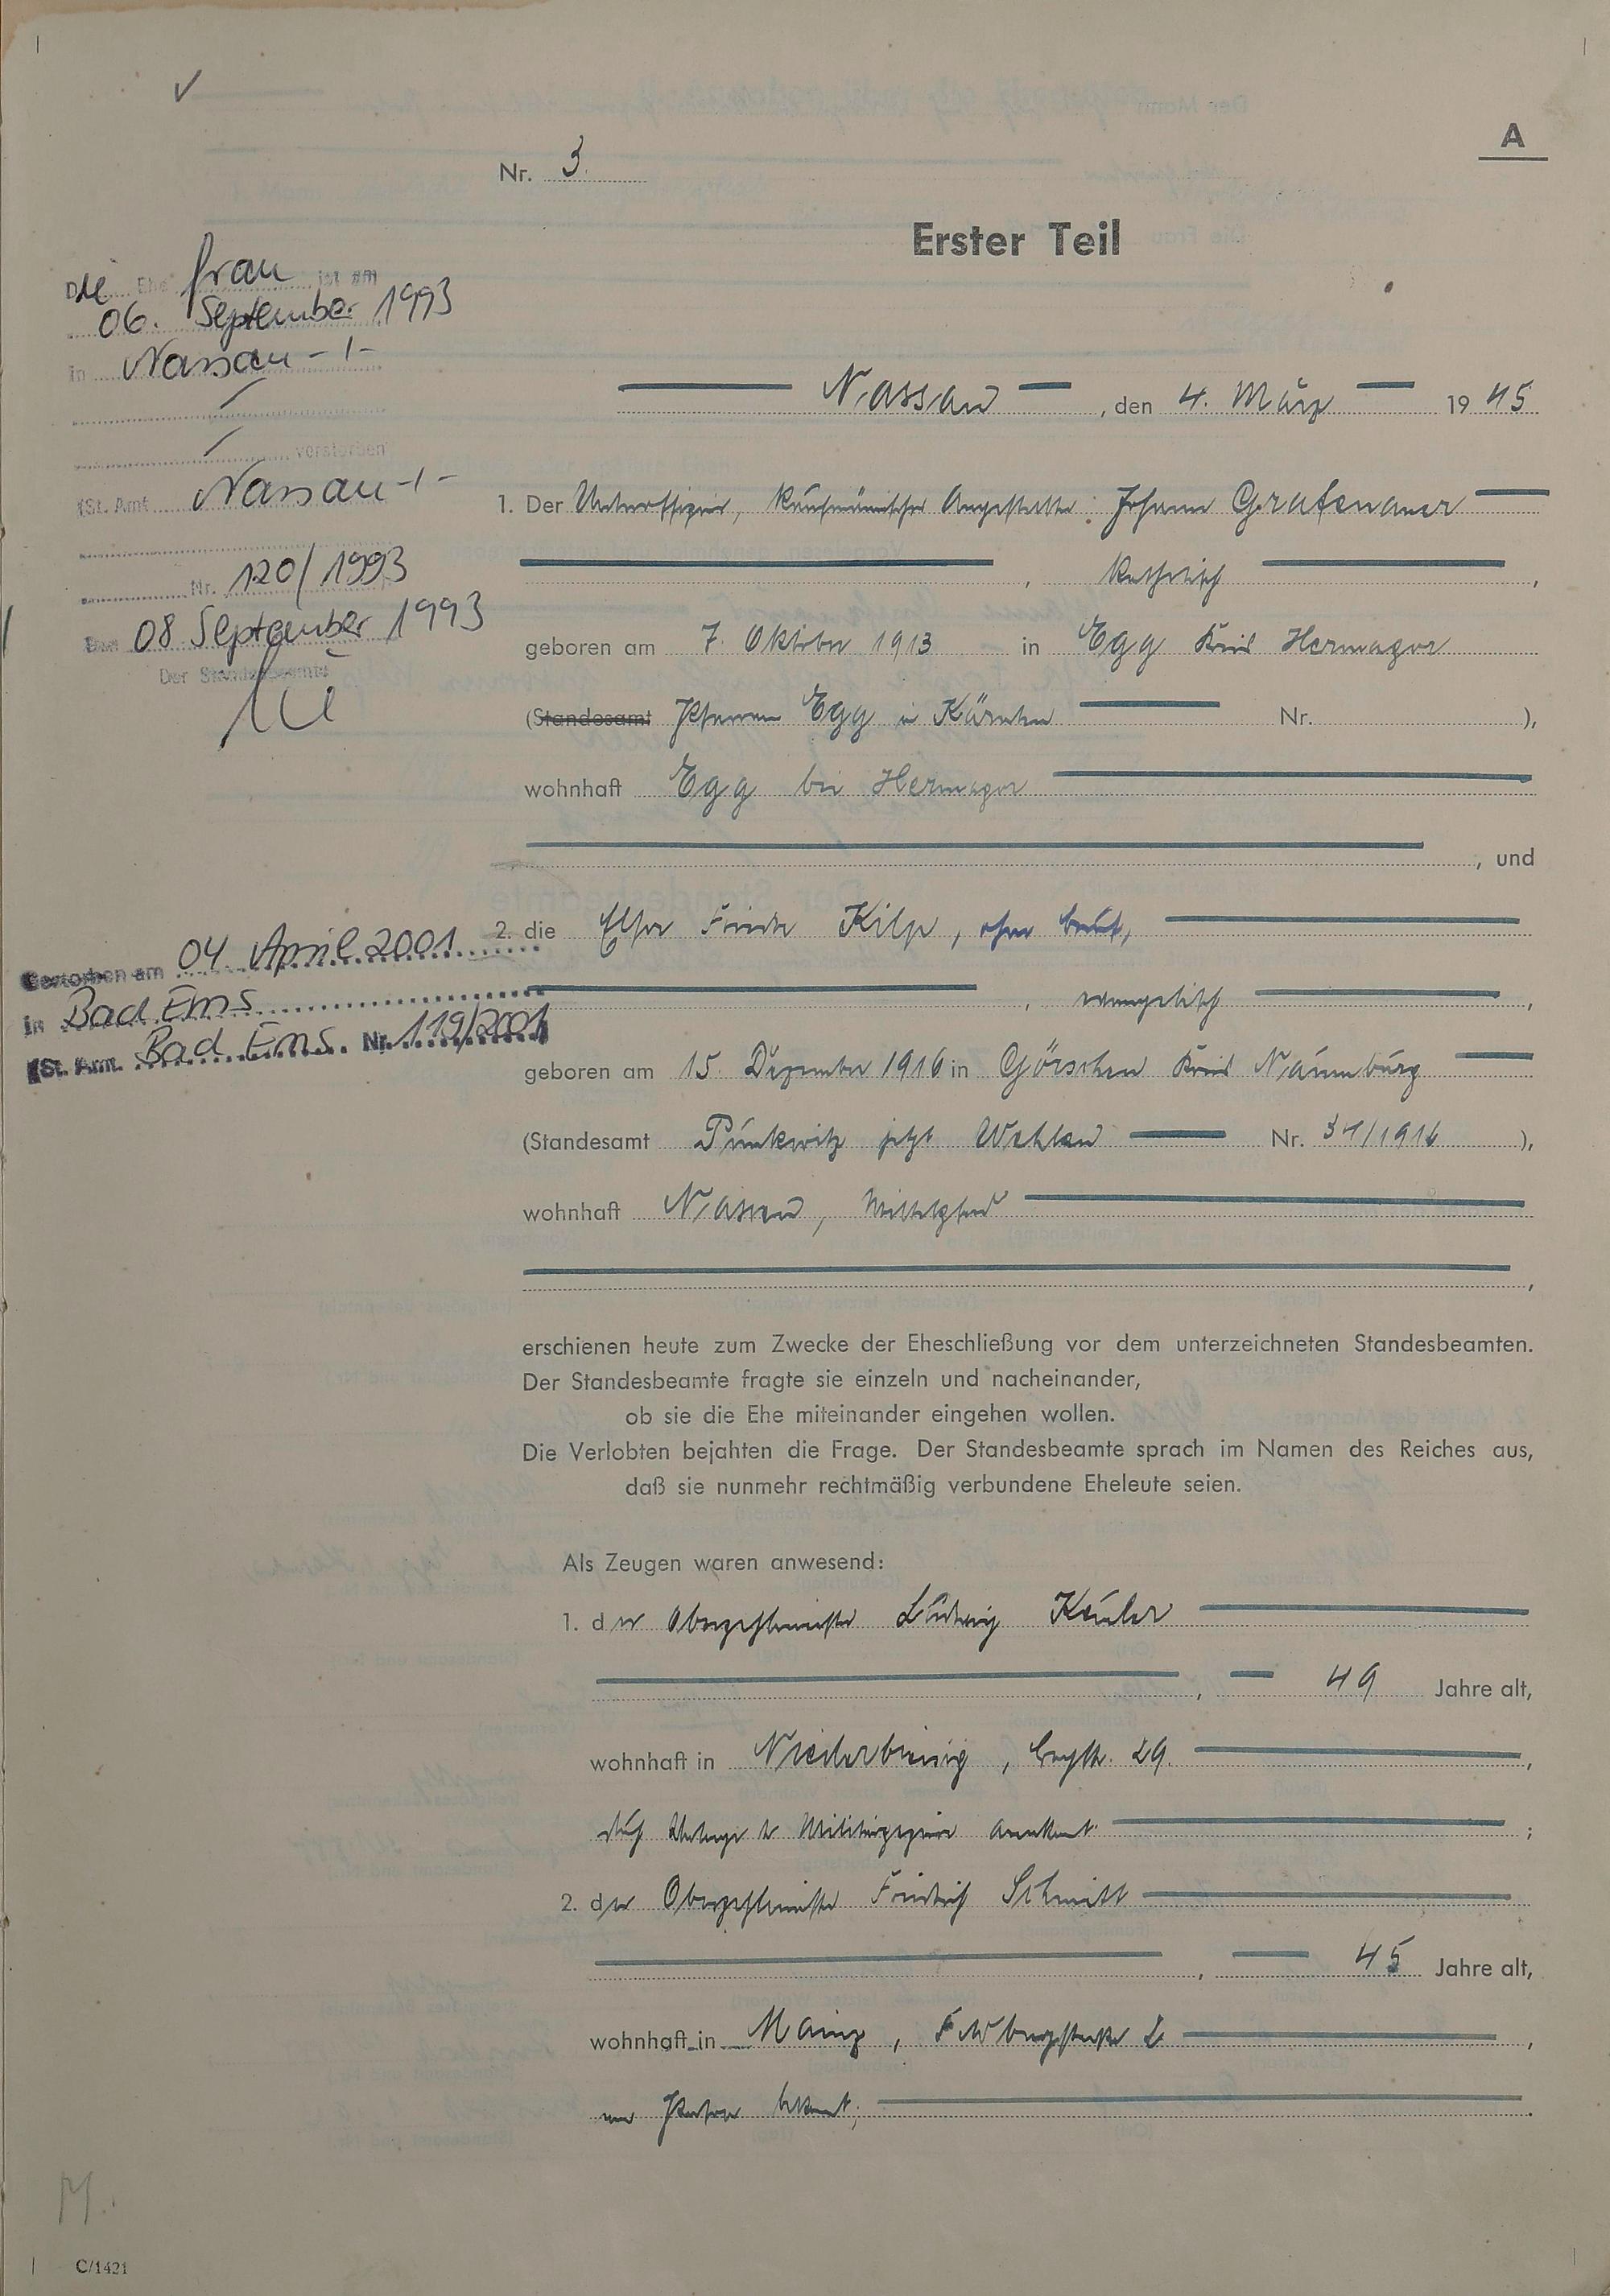 A
Nr. 3.
Erster Teil
Die Ehefrau ist am
06. September 1993
in Nassau -/-
verstorben
(St. Amt Nassau -/-
Nr. 120/1993
Den 08 September 1993
Der Standesbeamte
Nassau, den 4. März 1945
1. Der Unteroffizier, kaufmännischer Angestellte Johann Grafenauer
, katholisch ,
geboren am 7. Oktober 1913 in Egg Kreis Hermagor
(Standesamt Pfarramt Egg in Kärnten Nr. ),
wohnhaft Egg bei Hermagor
, und
Gestorben am 04 April 2001
in Bad Ems
(St. Amt. Bad Ems. Nr. 119/2001
2. die Elsa Frieda Kilp, ohne Beruf,
, evangelisch ,
geboren am 15. Dezember 1916 in Görschen Kreis Naumburg
(Standesamt Punkewitz jetzt Wethau Nr. 37/1916 ),
wohnhaft Nassau,
,
erschienen heute zum Zwecke der Eheschließung vor dem unterzeichneten Standesbeamten.
Der Standesbeamte fragte sie einzeln und nacheinander,
ob sie die Ehe miteinander eingehen wollen.
Die Verlobten bejahten die Frage. Der Standesbeamte sprach im Namen des Reiches aus,
daß sie nunmehr rechtmäßig verbundene Eheleute seien.
Als Zeugen waren anwesend:
1. der Oberzahlmeister Ludwig Keuler
, 49 Jahre alt,
wohnhaft in Niederbreisig, 29.
durch Vorlage des anerkannt ;
2. der Oberzahlmeister Friedrich Schmitt
, 45 Jahre alt,
wohnhaft in Mainz, Feldbergstraße 2 ,
von Person bekannt;
M.
C/1421